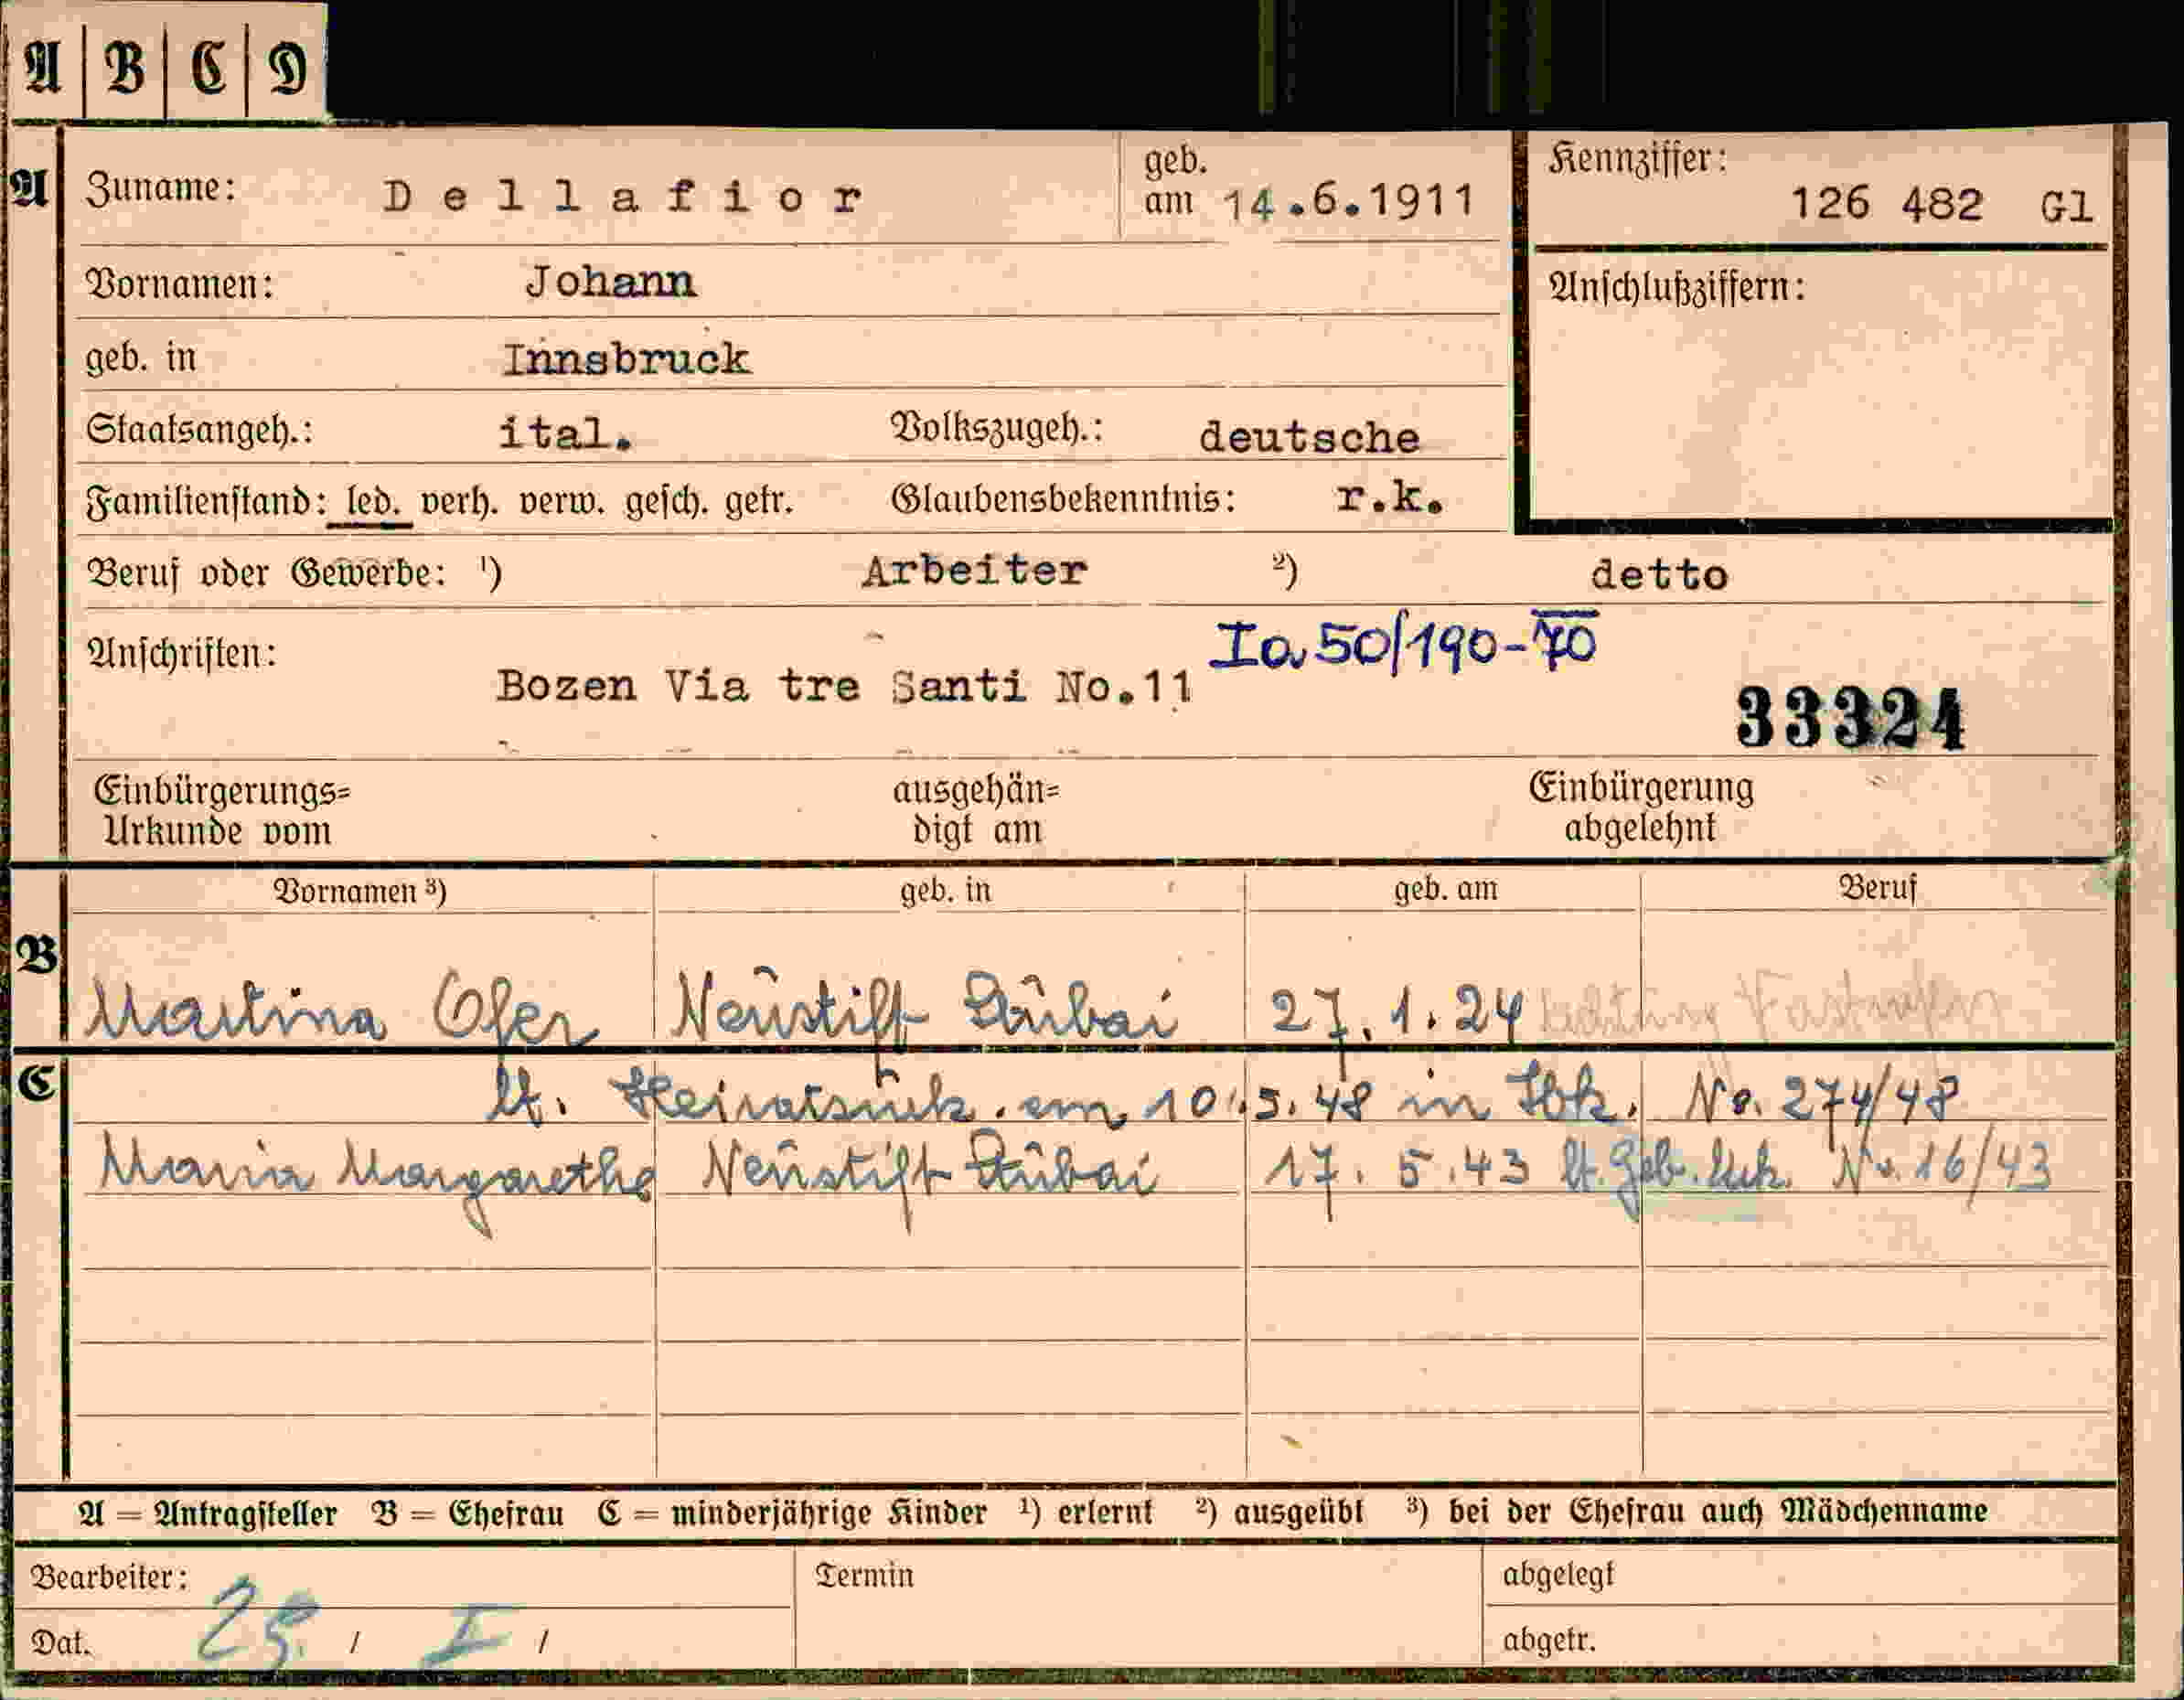 A | B | C | D
A Zuname: Dellafior geb. am 14.6.1911 Kennziffer: 126 482 Gl
Vornamen: Johann Anschlußziffern:
geb. in Innsbruck
Staatsangeh.: ital. Volkszugeh.: deutsche
Familienstand: led. verh. verw. gesch. getr. Glaubensbekenntnis: r.k.
Beruf oder Gewerbe: ¹) Arbeiter ²) detto
Ia 50/190-70
Anschriften: Bozen Via tre Santi No.11
33324
Einbürgerungs= ausgehän= Einbürgerung
Urkunde vom digt am abgelehnt
Vornamen ³) geb. in geb. am Beruf
B Martina Ofer Neustift Stubai 27.1.24
C lt. Heiratsurk. am 10.5.48 in Ibk. No. 274/48
Maria Margarethe Neustift Stubai 17.5.43 lt. Geb. Urk. No. 16/43
A = Antragsteller B = Ehefrau C = minderjährige Kinder ¹) erlernt ²) ausgeübt ³) bei der Ehefrau auch Mädchenname
Bearbeiter: Termin abgelegt
Dat. / I / abgetr.